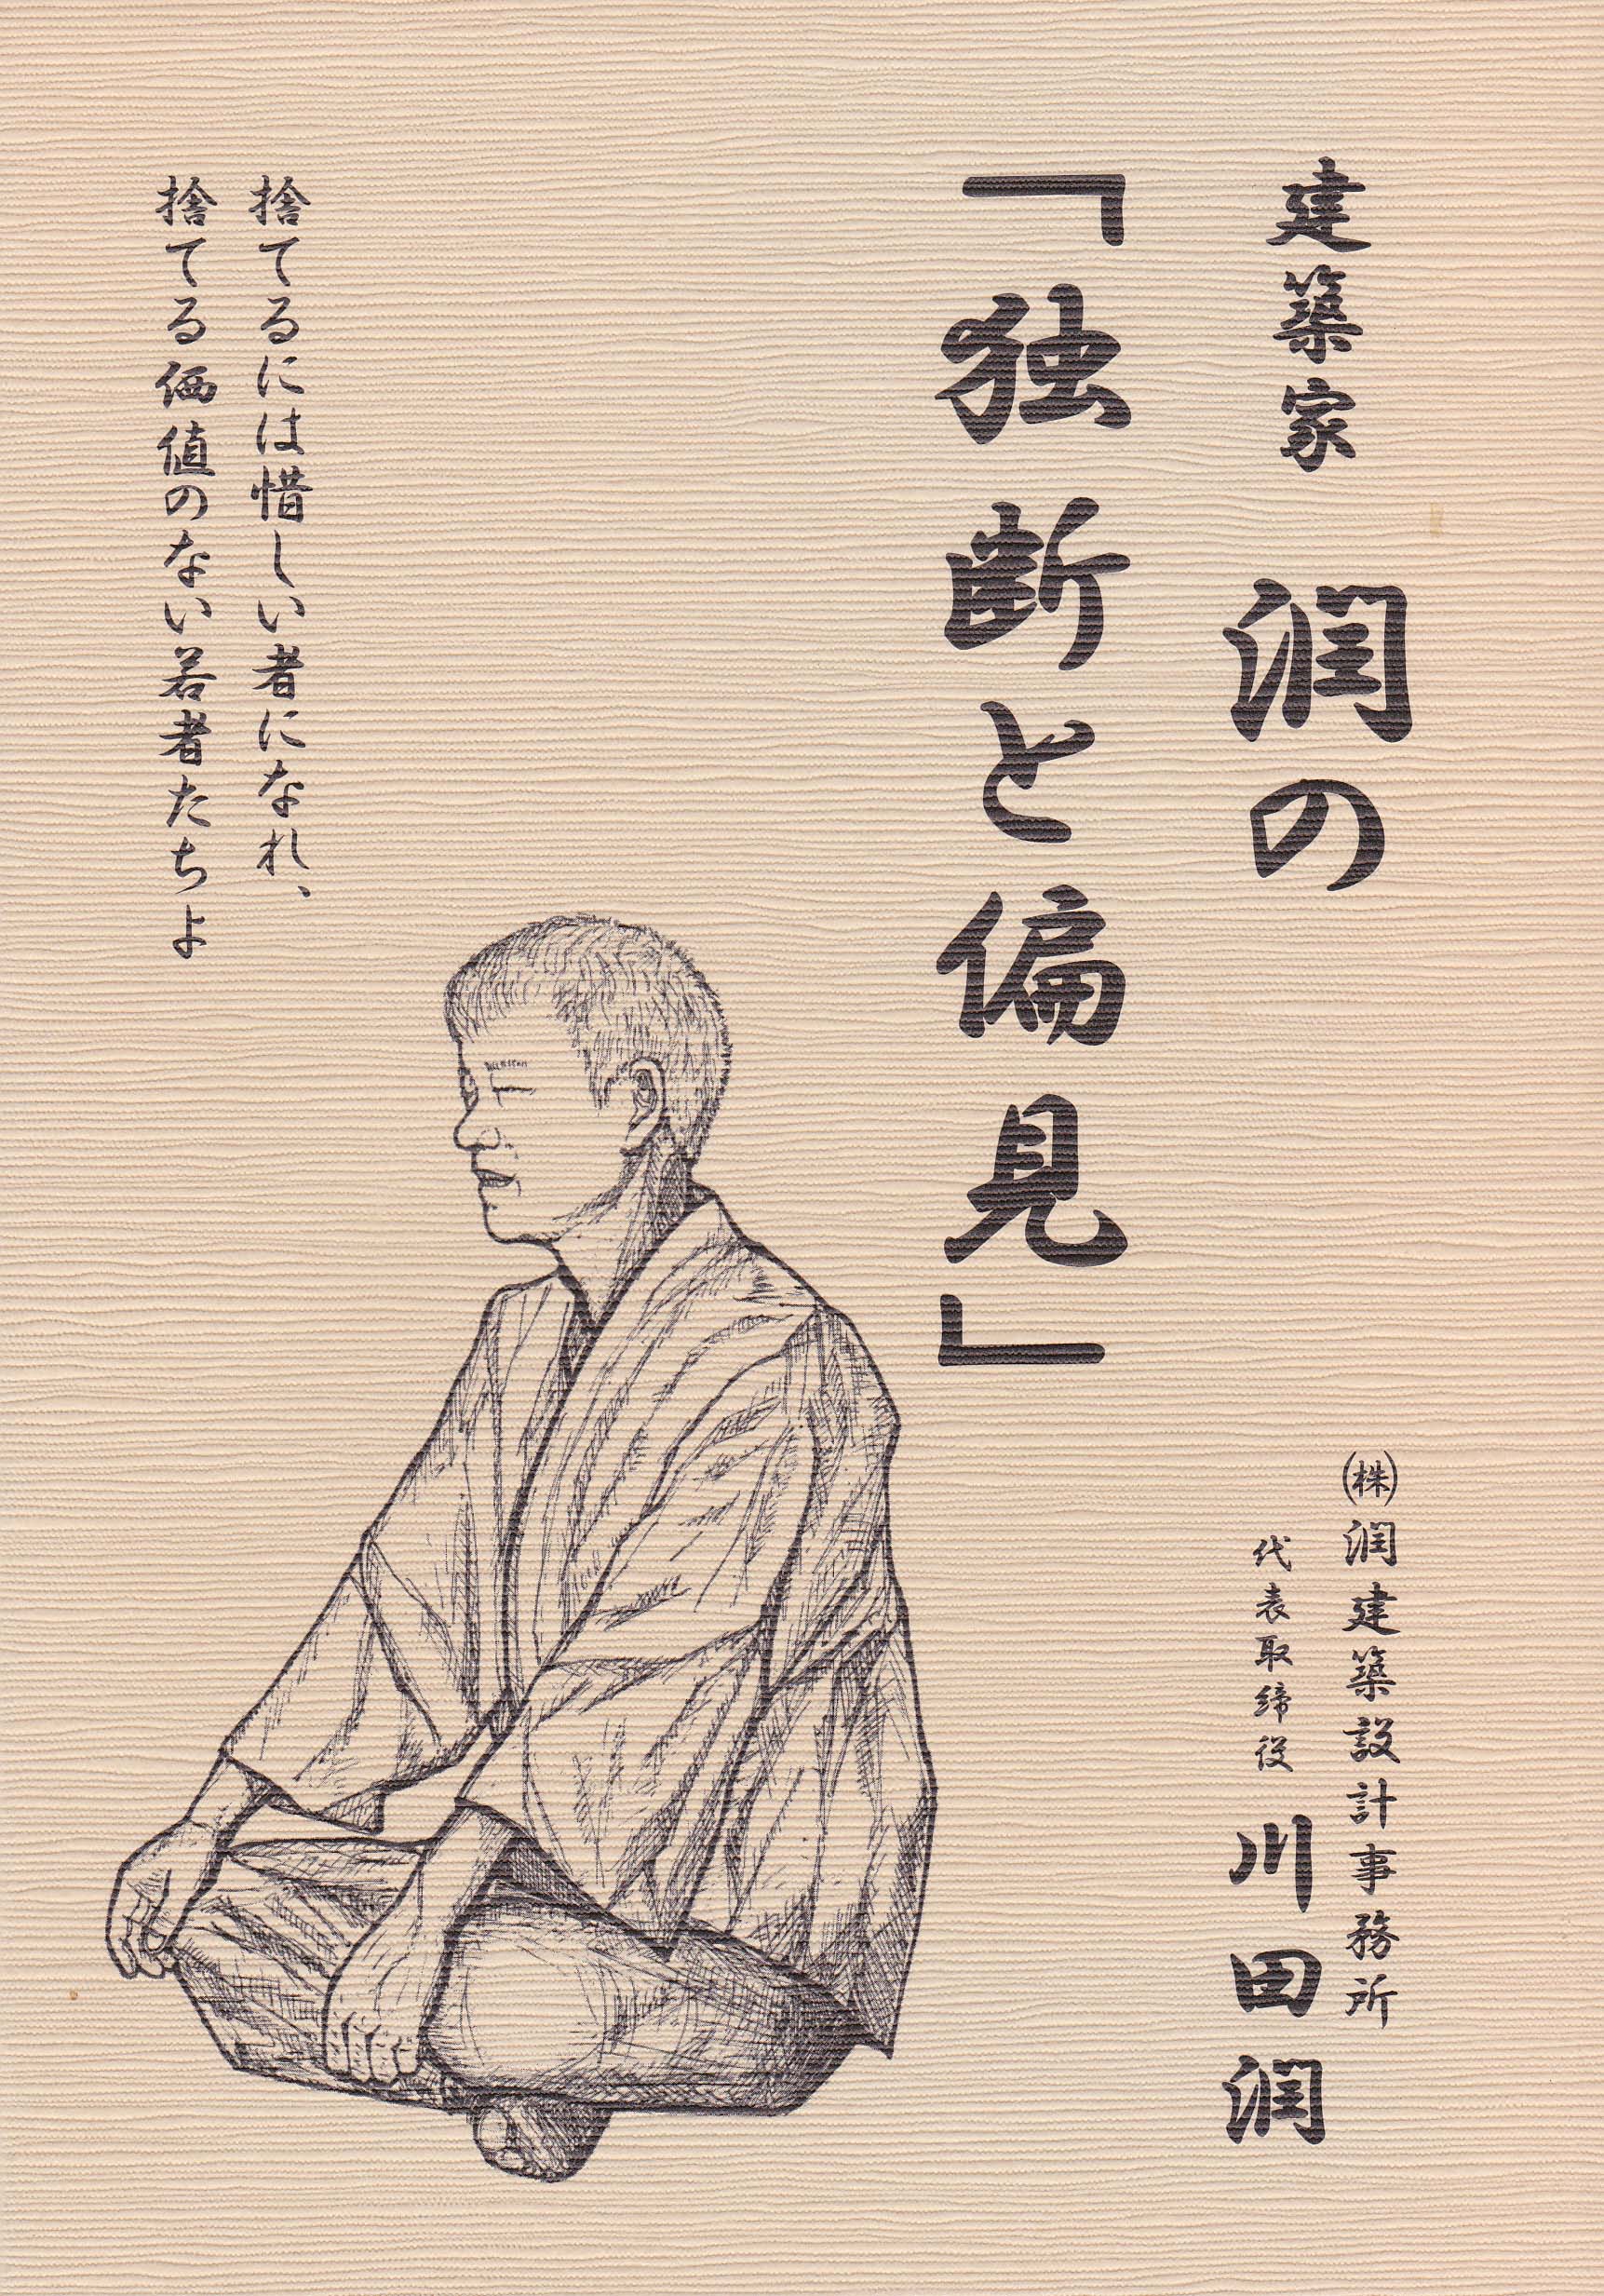 建築家 潤の
「独断と偏見」
㈱潤建築設計事務所
代表取締役 川田潤
捨てるには惜しい者になれ、
捨てる価値のない若者たちよ